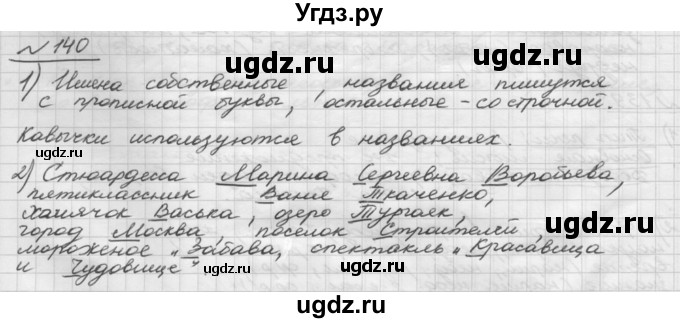 Угдз.ру
№ 140
1) Имена собственные, названия пишутся
с прописной буквы, остальные - со строчной.
Кавычки используются в названиях.
2) Стюардесса Марина Сергеевна Воробьева,
пятиклассник Ваня Ткаченко,
хомячок Васька, озеро Тургаяк,
город Москва, поселок Строителей,
мороженое „Забава, спектакль „Красавица
и Чудовище"
ugdz.ru
ugdz.ru
ugdz.ru
ugdz.ru
ugdz.ru
ugdz.ru
ugdz.ru
ugdz.ru
ugdz.ru
ugdz.ru